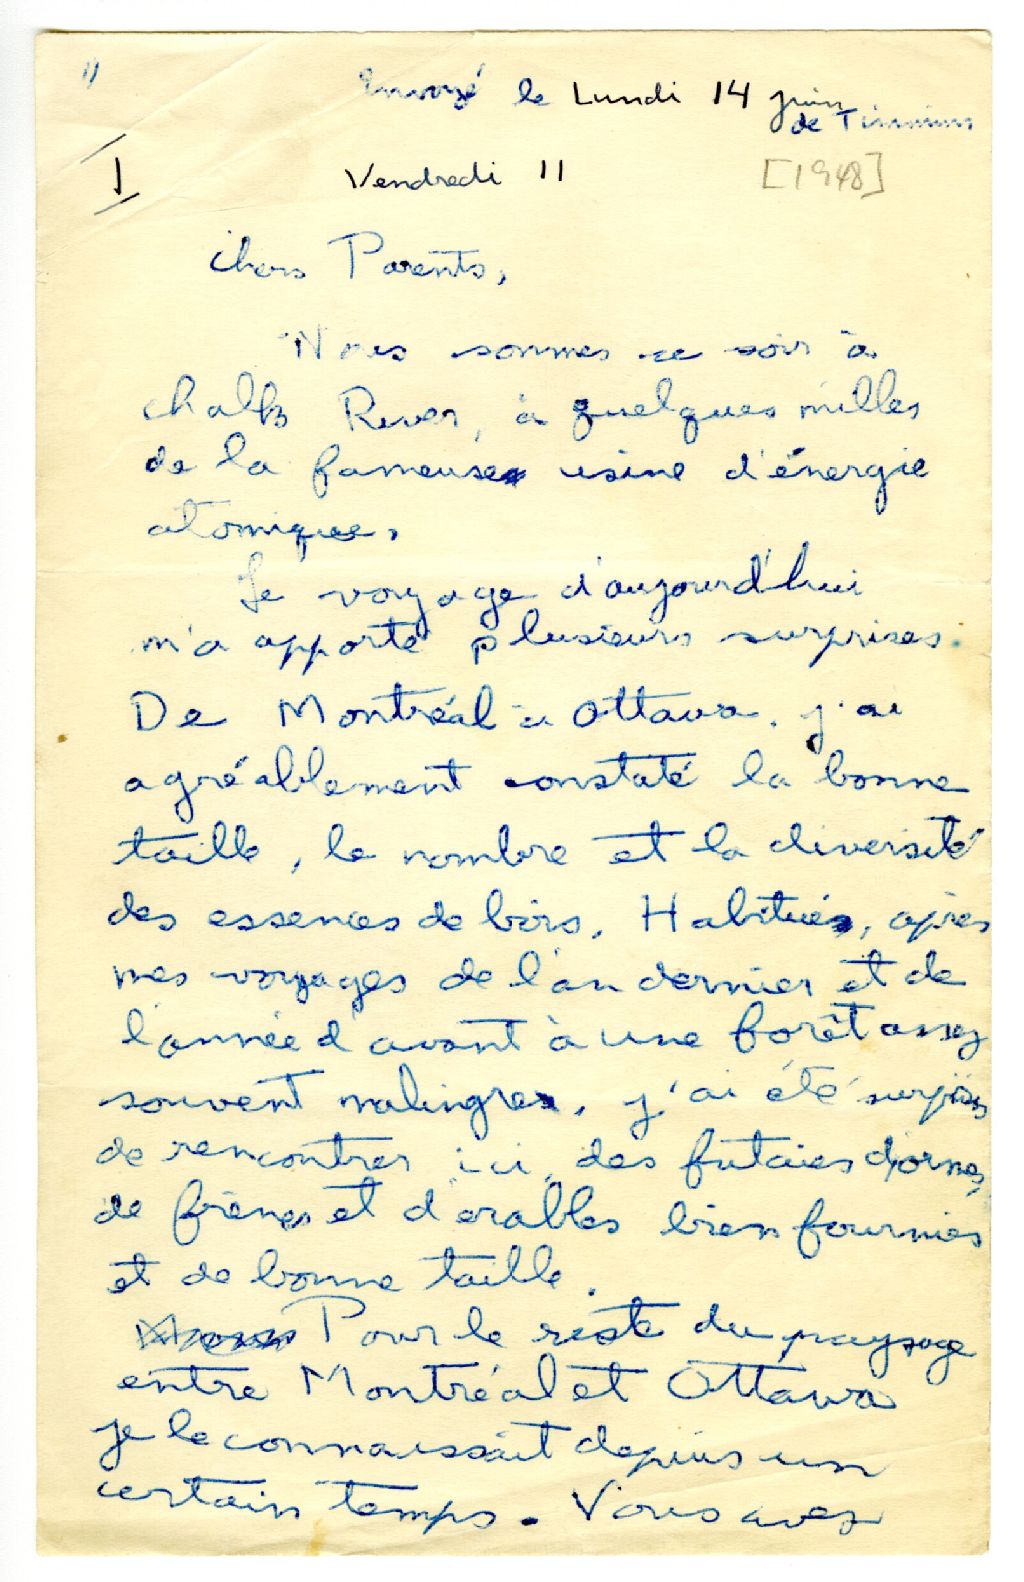 11
Envoyé le Lundi 14 juin
de Timmins
I
Vendredi 11
[1948]
Chers Parents,
Nous sommes ce soir à
Chalk River, à quelques milles
de la fameuse usine d'énergie
atomique.
Le voyage d'aujourd'hui
m'a apporté plusieurs surprises.
De Montréal à Ottawa, j'ai
agréablement constaté la bonne
taille, le nombre et la diversité
des essences de bois. Habitué, après
mes voyages de l'an dernier et de
l'année d'avant à une forêt assez
souvent malingre, j'ai été surpris
de rencontrer ici, des futaies d'ormes,
de frênes et d'erables bien fournies
et de bonne taille.
Pour le reste du paysage
entre Montréal et Ottawa
je le connaissait depuis un
certain temps. Vous avez